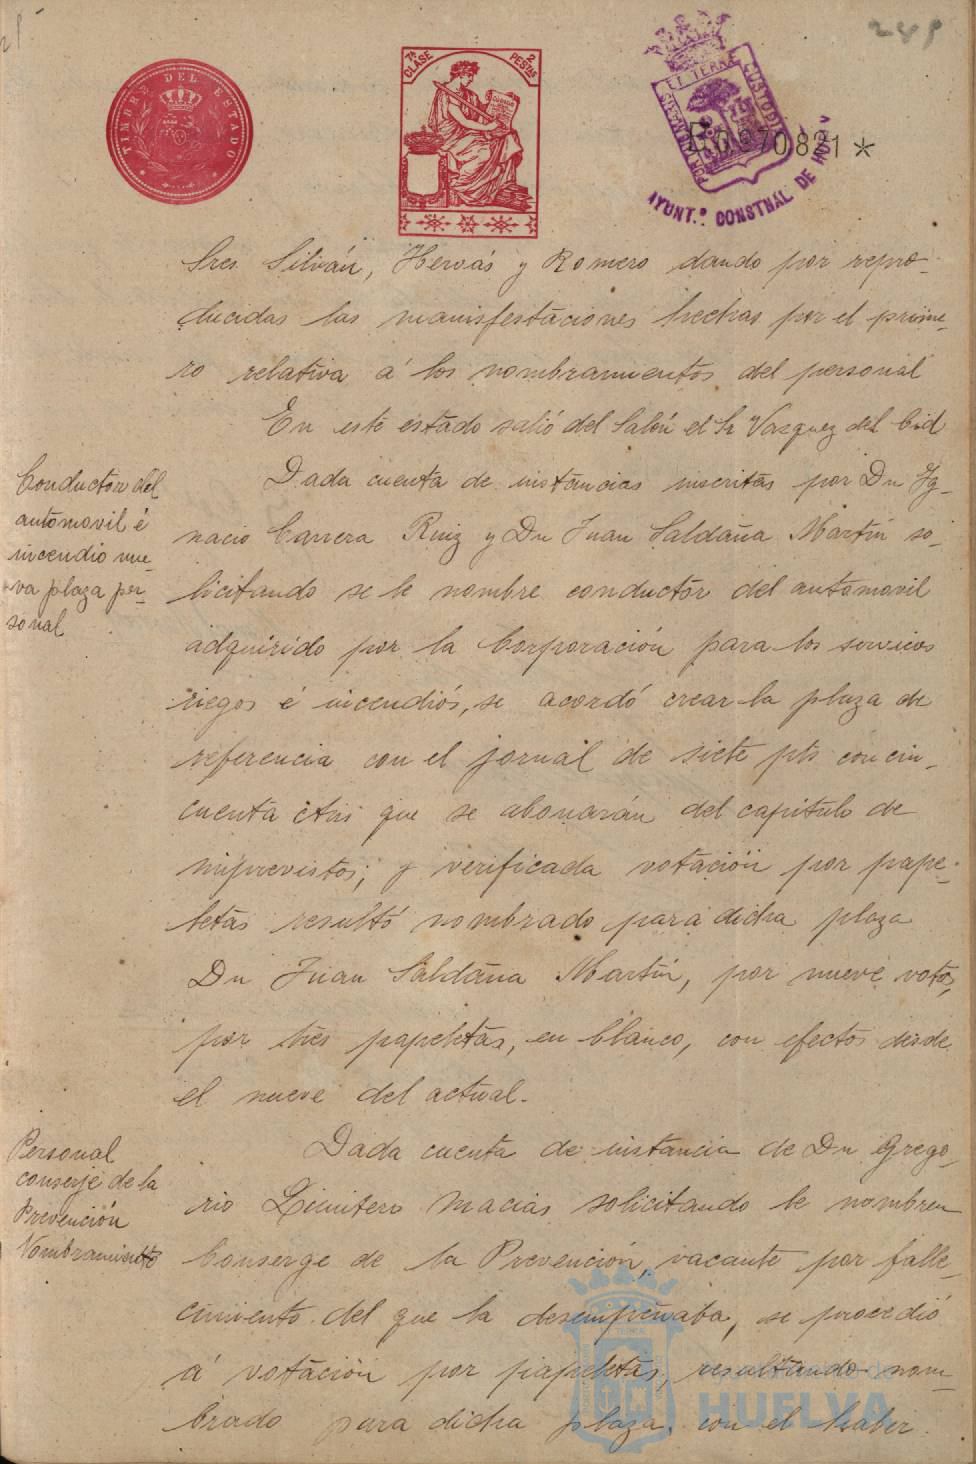 TIMBRE DEL ESTADO
7ª CLASE
2 PESTAS
PORTUS MARIS ET TERRAE CUSTODIA
AYUNT.º CONSTNAL DE HUELV
0.970.821 *
Sres. Silván, Hervás y Romero dando por repro-
ducidas las manifestaciones hechas por el prime-
ro relativa á los nombramientos del personal
En este estado salió del Salón el Sr Vazquez del Cid
Conductor del
automovil é
incendio nue-
va plaza per-
sonal
Dada cuenta de instancias inscritas por Dn Ig-
nacio Carrera Ruiz y Dn Juan Saldaña Martín so-
licitando se le nombre conductor del automovil
adquirido por la Corporación para los servicios
riegos é incendiós, se acordó crear la plaza de
referencia con el jornal de siete pts con cin-
cuenta ctms que se abonarán del capitulo de
imprevistos; y verificada votación por pape-
letas resultó nombrado para dicha plaza
Dn Juan Saldaña Martín, por nueve votos,
por tres papeletas, en blanco, con efectos desde
el nueve del actual.
Personal
conserje de la
Prevención
Nombramiento
Dada cuenta de instancia de Dn Grego-
rio Quintero Macias solicitando le nombren
Conserge de la Prevención, vacante por falle-
cimiento del que la desempeñaba, se procedió
á votación por papeletas, resultando nom-
brado para dicha plaza, con el haber
Ayuntamiento de
HUELVA